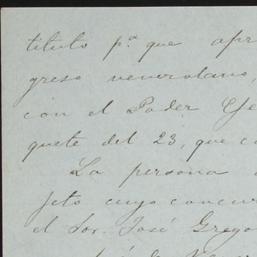 tituto pª que apr
greso venezolano,
con el Poder Eje
quete del 23, que c
La persona
jeto cuyo concur
el Sor. José Grego